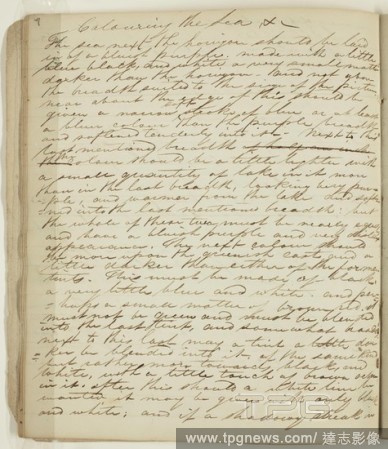 Colouring the Sea &c
The sea next the horizon should be laid
in of a bluish purple, made with a little
blue black, and white a very small matter
darker than the horizon. And not upon
the breadth suited to the size of the picture
near about the edge of this should be
given a narrow of blue or at least
a bluer colour than the purple beneath
and softened tenderly into it. Next to this
last mentioned breadth
colour should be a little lighter with
a small quantity of lake in it more
than in the last breadth, looking very pur-
ple, and warmer from the lake and soft-
ned into the last mentioned breadth; but
the whole of these two must be nearly equal
and have a bluish purple and not
appearance. The next colour should
be more upon the greenish cast, and a
little darker than either of the former
tints. This must be made of black
a very little blue and white. and per-
haps a small matter of
must not be green and must be blended
into the last tint, and somewhat
next to this last may a tint a little dar-
ker be blended into it, of the same kind
but rather more towards black, and
white, with a little touch of brown
in it. after this should a white line be
wanted it may be given of only blue
and white; and if a shadowy streak in
TPG
www.tpgnews.com/達志影像